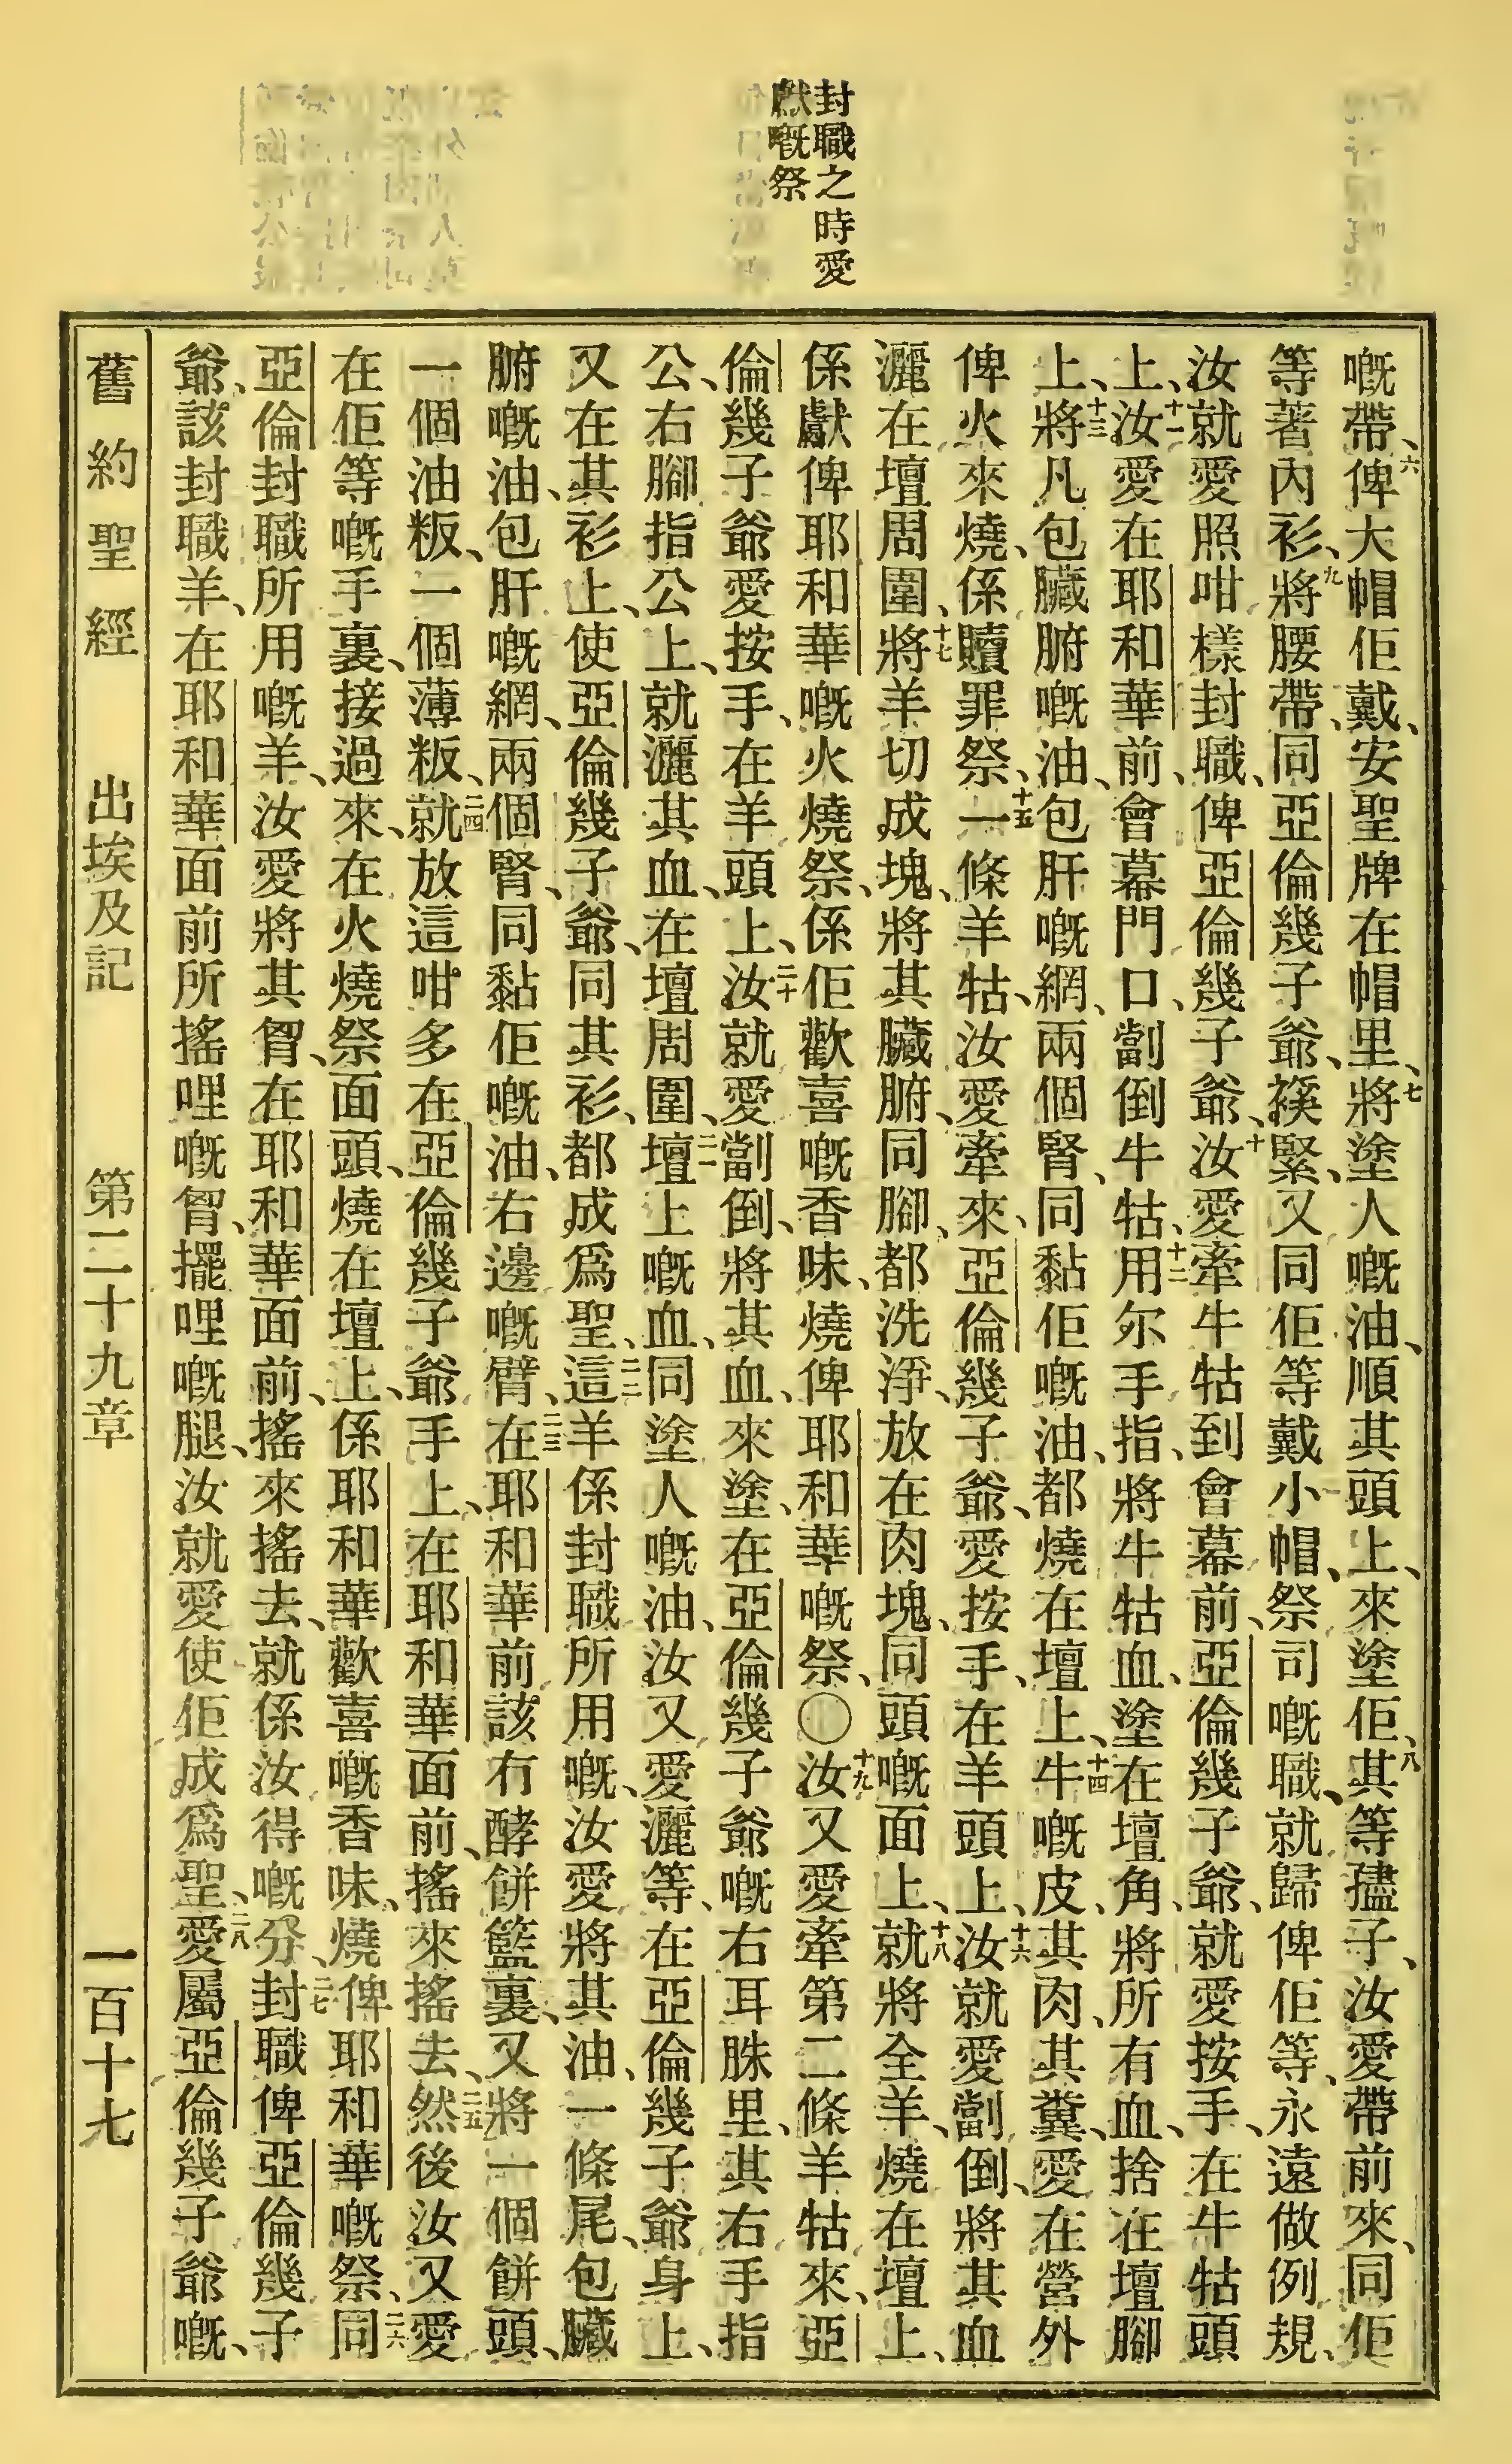 封職之時愛
獻嘅祭
嘅帶、六俾大帽佢戴、安聖牌在帽里、七將塗人嘅油、順其頭上、來塗佢、八其等孻子、汝愛帶前來、同佢
等著內衫、九將腰帶、同亞倫幾子爺、𧜵緊、又同佢等戴小帽、祭司嘅職、就歸俾佢等、永遠做例規、
汝就愛照咁樣封職、俾亞倫幾子爺、十汝愛牽牛牯到會幕前、亞倫幾子爺、就愛按手、在牛牯頭
上、十一汝愛在耶和華前、會幕門口、劏倒牛牯、十二用尔手指、將牛牯血、塗在壇角、將所有血、捨在壇腳
上、十三將凡包臟腑嘅油、包肝嘅網、兩個腎、同黏佢嘅油、都燒在壇上、十四牛嘅皮、其肉、其糞、愛在營外
俾火來燒、係贖罪祭、十五一條羊牯、汝愛牽來、亞倫幾子爺、愛按手、在羊頭上、十六汝就愛劏倒、將其血
灑在壇周圍、十七將羊切成塊、將其臟腑、同腳、都洗淨、放在肉塊、同頭嘅面上、十八就將全羊、燒在壇上、
係獻俾耶和華嘅火燒祭、係佢歡喜嘅香味、燒俾耶和華嘅祭、〇十九汝又愛牽第二條羊牯來、亞
倫幾子爺愛按手、在羊頭上、二十汝就愛劏倒、將其血、來塗、在亞倫幾子爺嘅右耳朱里、其右手指
公、右腳指公上、就灑其血、在壇周圍、二一壇上嘅血、同塗人嘅油、汝又愛灑等、在亞倫幾子爺身上、
又在其衫上、使亞倫幾子爺、同其衫、都成爲聖、二二這羊係封職所用嘅、汝愛將其油、一條尾、包臟
腑嘅油、包肝嘅網、兩個腎、同黏佢嘅油、右邊嘅臂、二三在耶和華前、該冇酵餅籃裏、又將一個餅頭、
一個油粄、一個薄粄、二四就放這咁多在亞倫幾子爺手上、在耶和華面前、搖來搖去、二五然後汝又愛
在佢等嘅手裏、接過來、在火燒祭面頭、燒在壇上、係耶和華歡喜嘅香味、燒俾耶和華嘅祭、二六同
亞倫封職所用嘅羊、汝愛將其胷、在耶和華面前、搖來搖去、就係汝得嘅分、二七封職俾亞倫幾子
爺、該封職羊、在耶和華面前所搖哩嘅胷、擺哩嘅腿、汝就愛使佢成爲聖、二八愛屬亞倫幾子爺嘅、
舊約聖經 出埃及記 第二十九章 一百十七